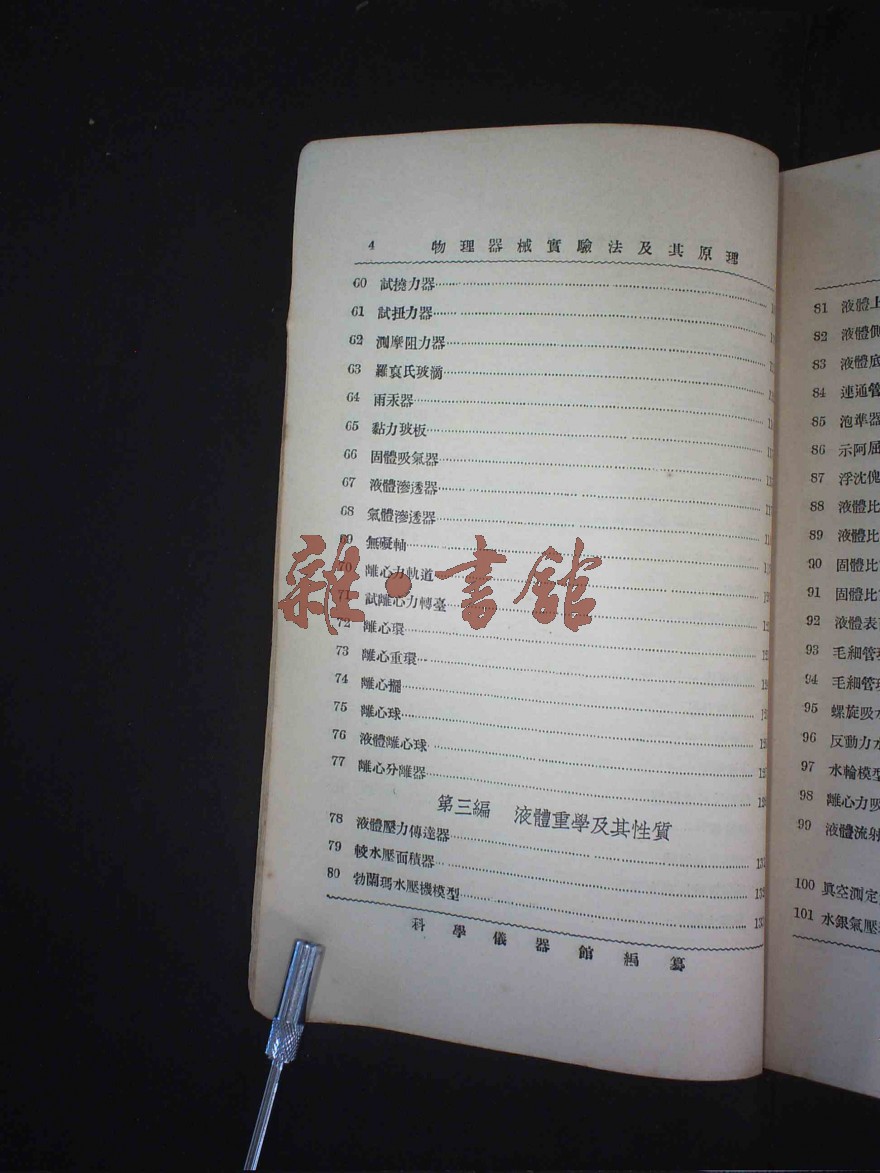 4 物理器械實驗法及其原理
60 試撓力器
61 試扭力器
62 測摩阻力器
63 羅哀氏玻滴
64 雨汞器
65 黏力玻板
66 固體吸氣器
67 液體滲透器
68 氣體滲透器
69 無礙軸
70 離心力軌道
71 試離心力轉臺
72 離心環
73 離心重環
74 離心擺
75 離心球
76 液體離心球
77 離心分離器
第三編 液體重學及其性质
78 液體壓力傳達器
79 較水壓面積器
80 勃蘭瑪水壓機模型
科學儀器館編纂
雜·書館
81 液體上
82 液體側
83 液體底
84 連通管
85 泡準器
86 示阿屈
87 浮沈傀
88 液體比
89 液體比
90 固體比
91 固體比
92 液體表
93 毛細管
94 毛細管
95 螺旋吸
96 反動力
97 水輪模型
98 離心力吸
99 液體流射
100 真空測定
101 水銀氣壓